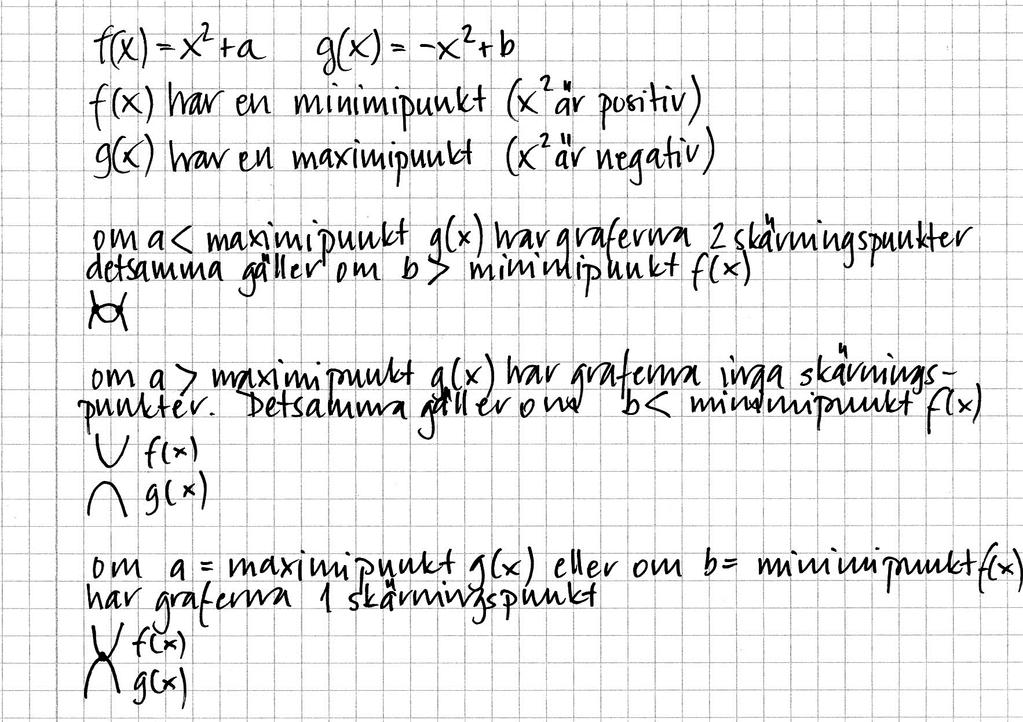 f(x) = x² + a g(x) = -x² + b
f(x) har en minimipunkt (x² är positiv)
g(x) har en maximipunkt (x² är negativ)
om a < maximipunkt g(x) har graferna 2 skärningspunkter
detsamma gäller om b > minimipunkt f(x)
om a > maximipunkt g(x) har graferna inga skärnings-
punkter. Detsamma gäller om b < minimipunkt f(x)
f(x)
g(x)
om a = maximipunkt g(x) eller om b = minimipunkt f(x)
har graferna 1 skärningspunkt
f(x)
g(x)